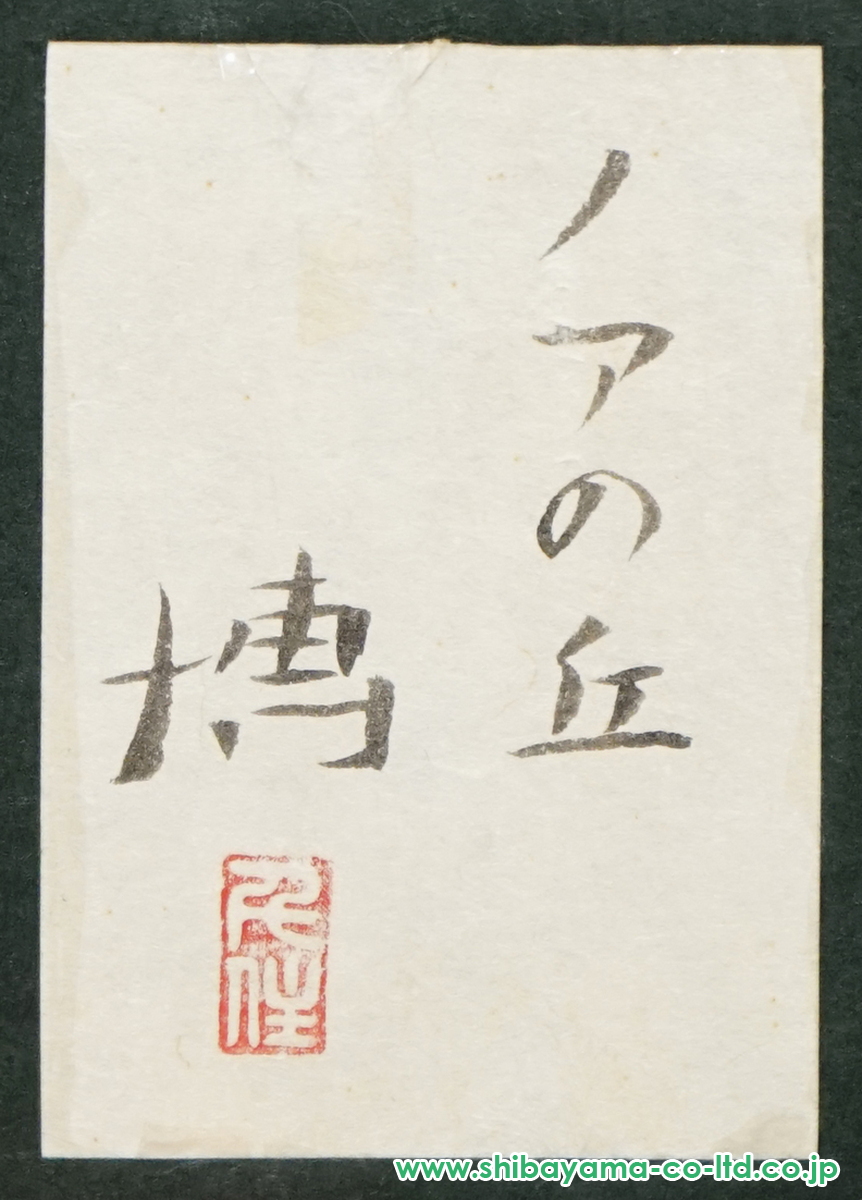 ノアの丘
博
久住
www.shibayama-co-ltd.co.jp